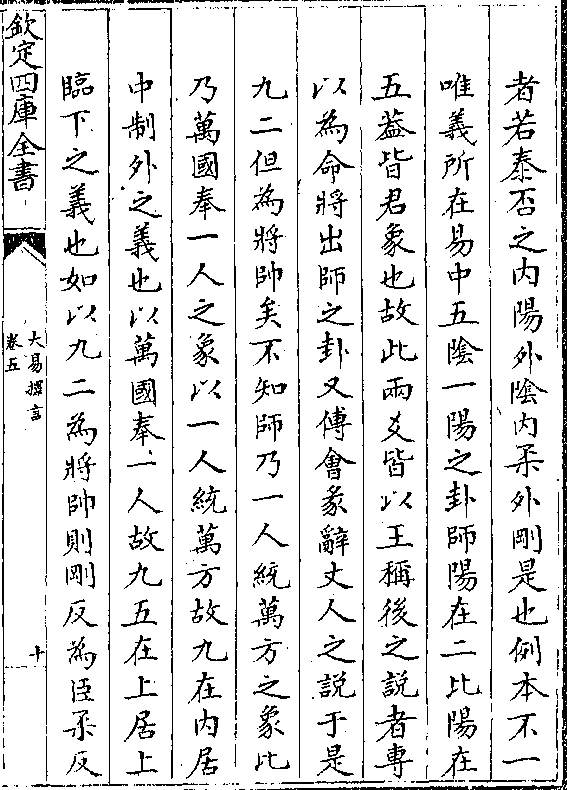 者若泰否之内陽外陰内柔外剛是也例本不一
唯義所在易中五陰一陽之卦師陽在二比陽在
五葢皆君象也故此兩爻皆以王稱後之説者専
以為命將出師之卦又傅㑹彖辭丈人之説于是
九二但為將帥矣不知師乃一人統萬方之象比
乃萬國奉一人之象以一人統萬方故九在内居
中制外之義也以萬國奉一人故九五在上居上
臨下之義也如以九二為將帥則剛反為臣柔反
欽定四庫全書
大易擇言
卷五
十